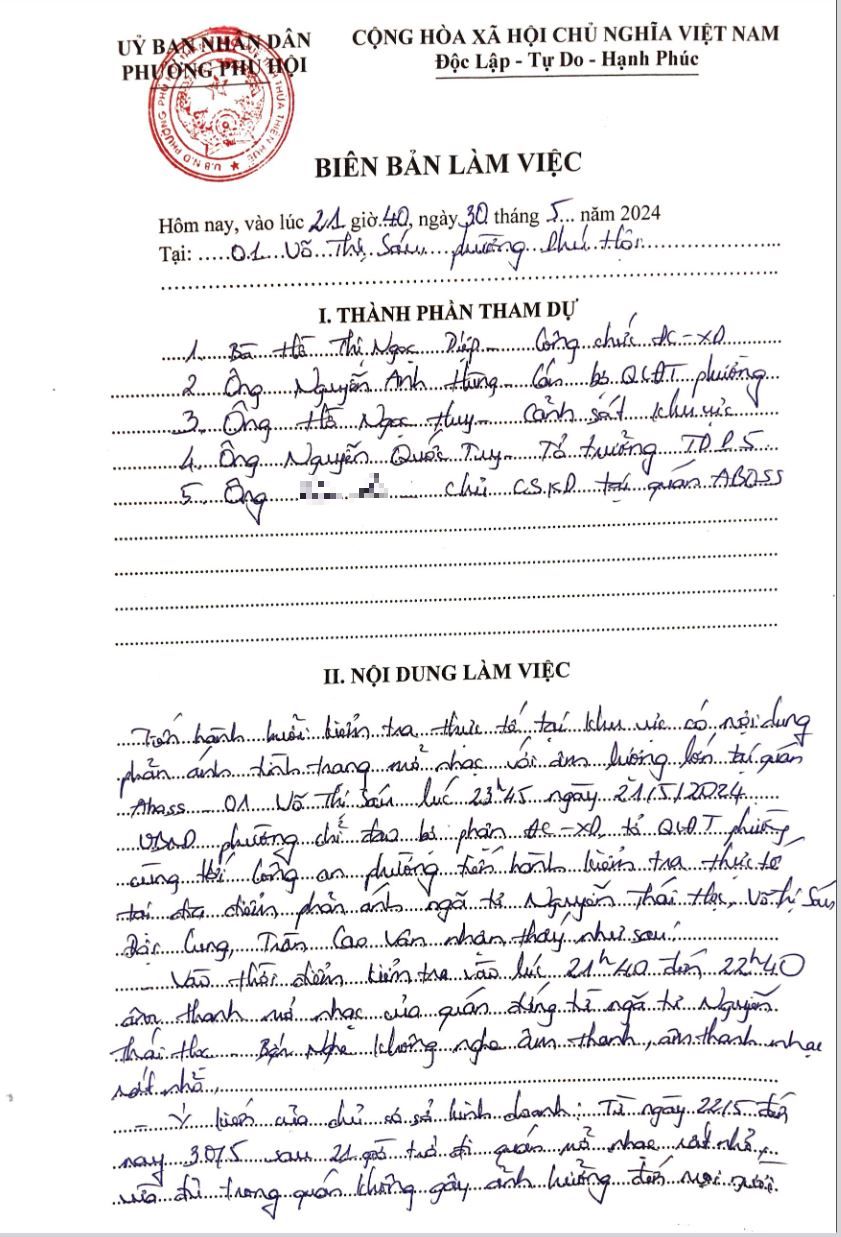 UỶ BAN NHÂN DÂN
PHƯỜNG PHÚ HỘI
CỘNG HÒA XÃ HỘI CHỦ NGHĨA VIỆT NAM
Độc Lập - Tự Do - Hạnh Phúc
BIÊN BẢN LÀM VIỆC
Hôm nay, vào lúc 21 giờ 40, ngày 30 tháng 5 năm 2024
Tại: 01 Võ Thị Sáu phường Phú Hội
I. THÀNH PHẦN THAM DỰ
1. Bà Hồ Thị Ngọc Diệp - Công chức ĐC-XD
2 Ông Nguyễn Anh Hùng - Cán bộ QLĐT phường
3. Ông Hồ Ngọc Huy - Cảnh sát khu vực
4. Ông Nguyễn Quốc Tuy - Tổ trưởng TDP 5
5. Ông chủ CSKD tại quán ABOSS
II. NỘI DUNG LÀM VIỆC
Tiến hành buổi kiểm tra thực tế tại khu vực có nội dung
phản ánh tình trạng mở nhạc với âm lượng lớn tại quán
Aboss 01 Võ Thị Sáu lúc 23h45 ngày 21/5/2024
UBND phường chỉ đạo bộ phận ĐC-XD, tổ QLĐT phường
cùng với Công an phường tiến hành kiểm tra thực tế
tại địa điểm phản ánh ngã tư Nguyễn Thái Học, Võ Thị Sáu
Đội Cung, Trần Cao Vân nhận thấy như sau:
Vào thời điểm kiểm tra vào lúc 21h40 đến 22h40
âm thanh mở nhạc của quán đứng từ ngã tư Nguyễn
Thái Học Bến Nghé không nghe âm thanh, âm thanh nhạc
rất nhỏ,
- Ý kiến của chủ cơ sở kinh doanh: Từ ngày 22/5 đến
nay 30/5 sau 21 giờ trở đi quán mở nhạc rất nhỏ,
vừa đủ trong quán không gây ảnh hưởng đến mọi người.